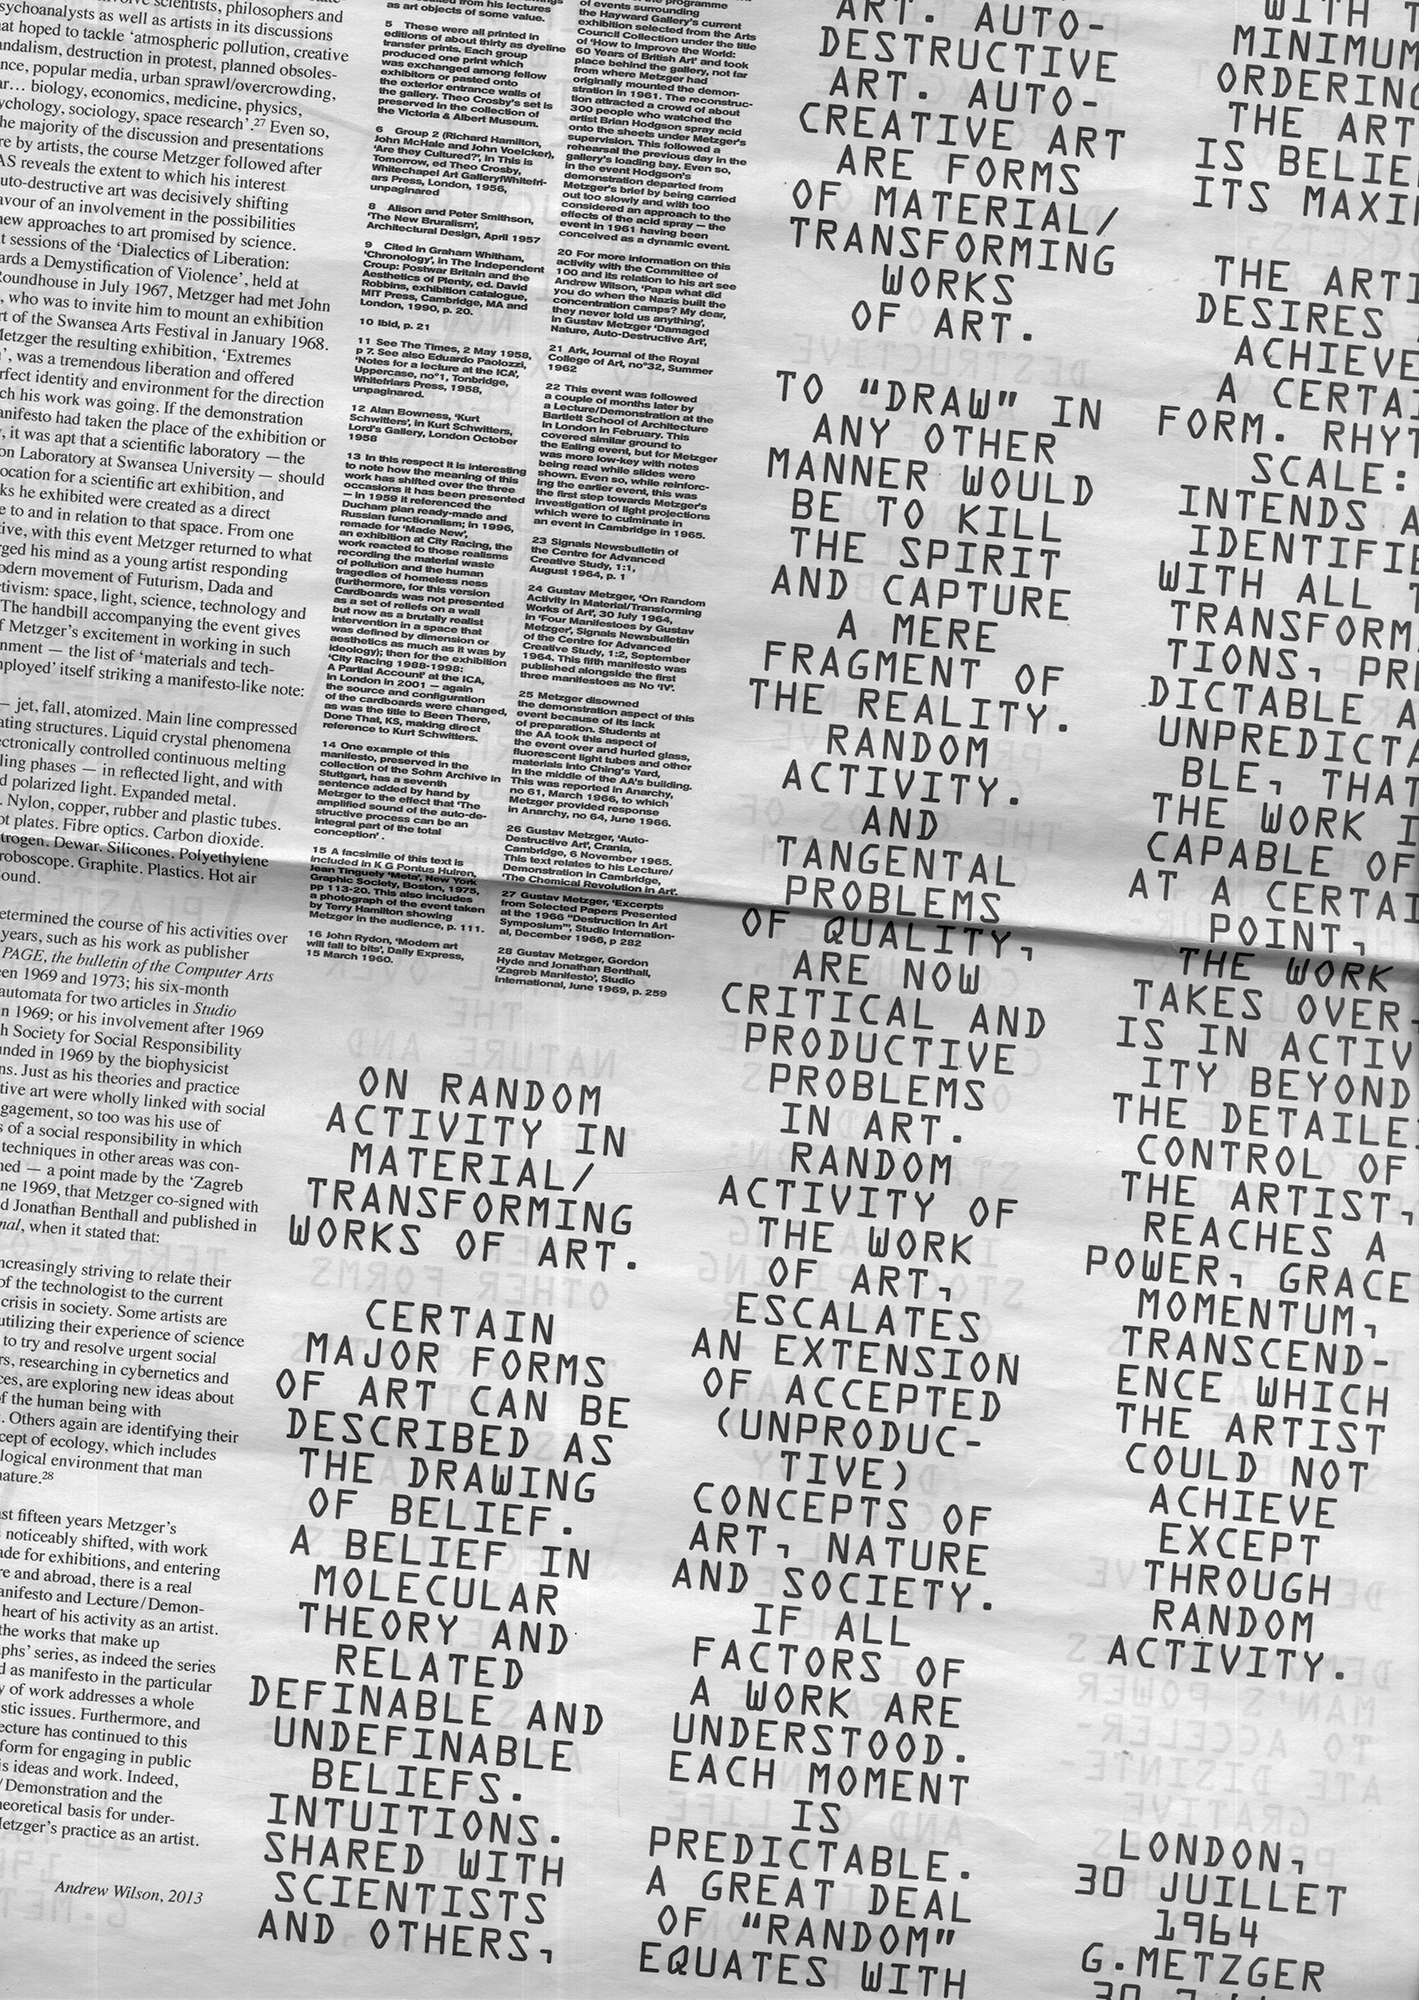 scientists, philosophers and
psychoanalysts as well as artists in its discussions
hoped to tackle ‘atmospheric pollution, creative
vandalism, destruction in protest, planned obsoles-
popular media, urban sprawl/overcrowding,
biology, economics, medicine, physics,
psychology, sociology, space research’.27 Even so,
the majority of the discussion and presentations
by artists, the course Metzger followed after
reveals the extent to which his interest
auto-destructive art was decisively shifting
favour of an involvement in the possibilities
new approaches to art promised by science.
sessions of the ‘Dialectics of Liberation:
a Demystification of Violence’, held at
Roundhouse in July 1967, Metzger had met John
, who was to invite him to mount an exhibition
of the Swansea Arts Festival in January 1968.
Metzger the resulting exhibition, ‘Extremes
’, was a tremendous liberation and offered
identity and environment for the direction
his work was going. If the demonstration
manifesto had taken the place of the exhibition or
, it was apt that a scientific laboratory — the
Laboratory at Swansea University — should
location for a scientific art exhibition, and
he exhibited were created as a direct
to and in relation to that space. From one
with this event Metzger returned to what
his mind as a young artist responding
modern movement of Futurism, Dada and
space, light, science, technology and
The handbill accompanying the event gives
of Metzger’s excitement in working in such
— the list of ‘materials and tech-
employed’ itself striking a manifesto-like note:
— jet, fall, atomized. Main line compressed
structures. Liquid crystal phenomena
electronically controlled continuous melting
phases — in reflected light, and with
polarized light. Expanded metal.
. Nylon, copper, rubber and plastic tubes.
plates. Fibre optics. Carbon dioxide.
Dewar. Silicones. Polyethylene
Graphite. Plastics. Hot air
determined the course of his activities over
years, such as his work as publisher
PAGE, the bulletin of the Computer Arts
1969 and 1973; his six-month
automata for two articles in Studio
in 1969; or his involvement after 1969
Society for Social Responsibility
founded in 1969 by the biophysicist
Just as his theories and practice
art were wholly linked with social
so too was his use of
of a social responsibility in which
techniques in other areas was con-
— a point made by the ‘Zagreb
1969, that Metzger co-signed with
Jonathan Benthall and published in
, when it stated that:
increasingly striving to relate their
of the technologist to the current
crisis in society. Some artists are
utilizing their experience of science
to try and resolve urgent social
researching in cybernetics and
are exploring new ideas about
of the human being with
. Others again are identifying their
concept of ecology, which includes
environment that man
nature.28
fifteen years Metzger’s
noticeably shifted, with work
made for exhibitions, and entering
and abroad, there is a real
manifesto and Lecture/Demon-
heart of his activity as an artist.
the works that make up
series, as indeed the series
as manifesto in the particular
of work addresses a whole
issues. Furthermore, and
lecture has continued to this
form for engaging in public
ideas and work. Indeed,
/Demonstration and the
theoretical basis for under-
Metzger’s practice as an artist.
Andrew Wilson, 2013
from his lectures
as art objects of some value.
5 These were all printed in
editions of about thirty as dyeline
transfer prints. Each group
produced one print which
was exchanged among fellow
exhibitors or pasted onto
the exterior entrance walls of
the gallery. Theo Crosby’s set is
preserved in the collection of
the Victoria & Albert Museum.
6 Group 2 (Richard Hamilton,
John McHale and John Voelcker),
‘Are they Cultured?’, in This is
Tomorrow, ed Theo Crosby,
Whitechapel Art Gallery/Whitefri-
ars Press, London, 1956,
unpaginared
8 Alison and Peter Smithson,
‘The New Bruralism’,
Architectural Design, April 1957
9 Cited in Graham Whitham,
‘Chronology’, in The Independent
Group: Postwar Britain and the
Aesthetics of Plenty, ed. David
Robbins, exhibition catalogue,
MIT Press, Cambridge, MA and
London, 1990, p. 20.
10 Ibid, p. 21
11 See The Times, 2 May 1958,
p 7. See also Eduardo Paolozzi,
‘Notes for a lecture at the ICA’,
Uppercase, no°1, Tonbridge,
Whitefriars Press, 1958,
unpaginared.
12 Alan Bowness, ‘Kurt
Schwitters’, in Kurt Schwitters,
Lord’s Gallery, London October
1958
13 In this respect it is interesting
to note how the meaning of this
work has shifted over the three
occasions it has been presented
— in 1959 it referenced the
Ducham plan ready-made and
Russian functionalism; in 1996,
remade for ‘Made New’,
an exhibition at City Racing, the
work reacted to those realisms
recording the material waste
of pollution and the human
tragedies of homeless ness
(furthermore, for this version
Cardboards was not presented
as a set of reliefs on a wall
but now as a brutally realist
intervention in a space that
was defined by dimension or
aesthetics as much as it was by
ideology); then for the exhibition
‘City Racing 1988-1998:
A Partial Account’ at the ICA,
in London in 2001 — again
the source and configuration
of the cardboards were changed,
as was the title to Been There,
Done That, KS, making direct
reference to Kurt Schwitters.
14 One example of this
manifesto, preserved in the
collection of the Sohm Archive in
Stuttgart, has a seventh
sentence added by hand by
Metzger to the effect that ‘The
amplified sound of the auto-de-
structive process can be an
integral part of the total
conception’.
15 A facsimile of this text is
included in K G Pontus Hulren,
Jean Tinguely ‘Meta’, New York
Graphic Society, Boston, 1975,
pp 113-20. This also includes
a photograph of the event taken
by Terry Hamilton showing
Metzger in the audience, p. 111.
16 John Rydon, ‘Modern art
will fall to bits’, Daily Express,
15 March 1960.
programme
of events surrounding
the Hayward Gallery’s current
exhibition selected from the Arts
Council Collection under the title
of ‘How to Improve the World:
60 Years of British Art’ and took
place behind the gallery, not far
from where Metzger had
originally mounted the demon-
stration in 1961. The reconstruc-
tion attracted a crowd of about
300 people who watched the
artist Brian Hodgson spray acid
onto the sheets under Metzger’s
supervision. This followed a
rehearsal the previous day in the
gallery’s loading bay. Even so,
in the event Hodgson’s
demonstration departed from
Metzger’s brief by being carried
out too slowly and with too
considered an approach to the
effects of the acid spray — the
event in 1961 having been
conceived as a dynamic event.
20 For more information on this
activity with the Committee of
100 and its relation to his art see
Andrew Wilson, ‘Papa what did
you do when the Nazis built the
concentration camps? My dear,
they never told us anything’,
in Gustav Metzger ‘Damaged
Nature, Auto-Destructive Art’,
21 Ark, Journal of the Royal
College of Art, no°32, Summer
1962
22 This event was followed
a couple of months later by
a Lecture/Demonstration at the
Bartlett School of Architecture
in London in February. This
covered similar ground to
the Ealing event, but for Metzger
was more low-key with notes
being read while slides were
shown. Even so, while reinforc-
ing the earlier event, this was
the first step towards Metzger’s
investigation of light projections
which were to culminate in
an event in Cambridge in 1965.
23 Signals Newsbulletin of
the Centre for Advanced
Creative Study, 1:1,
August 1964, p. 1
24 Gustav Metzger, ‘On Random
Activity in Material/Transforming
Works of Art’, 30 July 1964,
in ‘Four Manifestoes by Gustav
Metzger’, Signals Newsbulletin
of the Centre for Advanced
Creative Study, 1:2, September
1964. This fifth manifesto was
published alongside the first
three manifestoes as No ‘IV’.
25 Metzger disowned
the demonstration aspect of this
event because of its lack
of preparation. Students at
the AA took this aspect of
the event over and hurled glass,
fluorescent light tubes and other
materials into Ching’s Yard,
in the middle of the AA’s building.
This was reported in Anarchy,
no 61, March 1966, to which
Metzger provided response
in Anarchy, no 64, June 1966.
26 Gustav Metzger, ‘Auto-
Destructive Art’, Crania,
Cambridge, 6 November 1965.
This text relates to his Lecture/
Demonstration in Cambridge,
‘The Chemical Revolution in Art’.
27 Gustav Metzger, ‘Excerpts
from Selected Papers Presented
at the 1966 “Destruction in Art
Symposium”’, Studio Internation-
al, December 1966, p 282
28 Gustav Metzger, Gordon
Hyde and Jonathan Benthall,
‘Zagreb Manifesto’, Studio
International, June 1969, p. 259
ON RANDOM
ACTIVITY IN
MATERIAL/
TRANSFORMING
WORKS OF ART.
CERTAIN
MAJOR FORMS
OF ART CAN BE
DESCRIBED AS
THE DRAWING
OF BELIEF.
A BELIEF IN
MOLECULAR
THEORY AND
RELATED
DEFINABLE AND
UNDEFINABLE
BELIEFS.
INTUITIONS.
SHARED WITH
SCIENTISTS
AND OTHERS,
ART. AUTO-
DESTRUCTIVE
ART. AUTO-
CREATIVE ART
ARE FORMS
OF MATERIAL/
TRANSFORMING
WORKS
OF ART.
TO “DRAW” IN
ANY OTHER
MANNER WOULD
BE TO KILL
THE SPIRIT
AND CAPTURE
A MERE
FRAGMENT OF
THE REALITY.
RANDOM
ACTIVITY.
AND
TANGENTAL
PROBLEMS
OF QUALITY,
ARE NOW
CRITICAL AND
PRODUCTIVE
PROBLEMS
IN ART.
RANDOM
ACTIVITY OF
THE WORK
OF ART,
ESCALATES
AN EXTENSION
OF ACCEPTED
(UNPRODUC-
TIVE)
CONCEPTS OF
ART, NATURE
AND SOCIETY.
IF ALL
FACTORS OF
A WORK ARE
UNDERSTOOD.
EACH MOMENT
IS
PREDICTABLE.
A GREAT DEAL
OF “RANDOM”
EQUATES WITH
WITH T
MINIMUM
ORDERING
THE ART
IS BELIE
ITS MAXI
THE ARTI
DESIRES
ACHIEVE
A CERTAI
FORM. RHYT
SCALE:
INTENDS A
IDENTIFIE
WITH ALL T
TRANSFORM
TIONS, PRE
DICTABLE A
UNPREDICTA
BLE, THAT
THE WORK I
CAPABLE OF
AT A CERTAI
POINT,
THE WORK
TAKES OVER-
IS IN ACTIV
ITY BEYOND
THE DETAILE
CONTROL OF
THE ARTIST,
REACHES A
POWER, GRACE
MOMENTUM,
TRANSCEND-
ENCE WHICH
THE ARTIST
COULD NOT
ACHIEVE
EXCEPT
THROUGH
RANDOM
ACTIVITY.
LONDON,
30 JUILLET
1964
G.METZGER